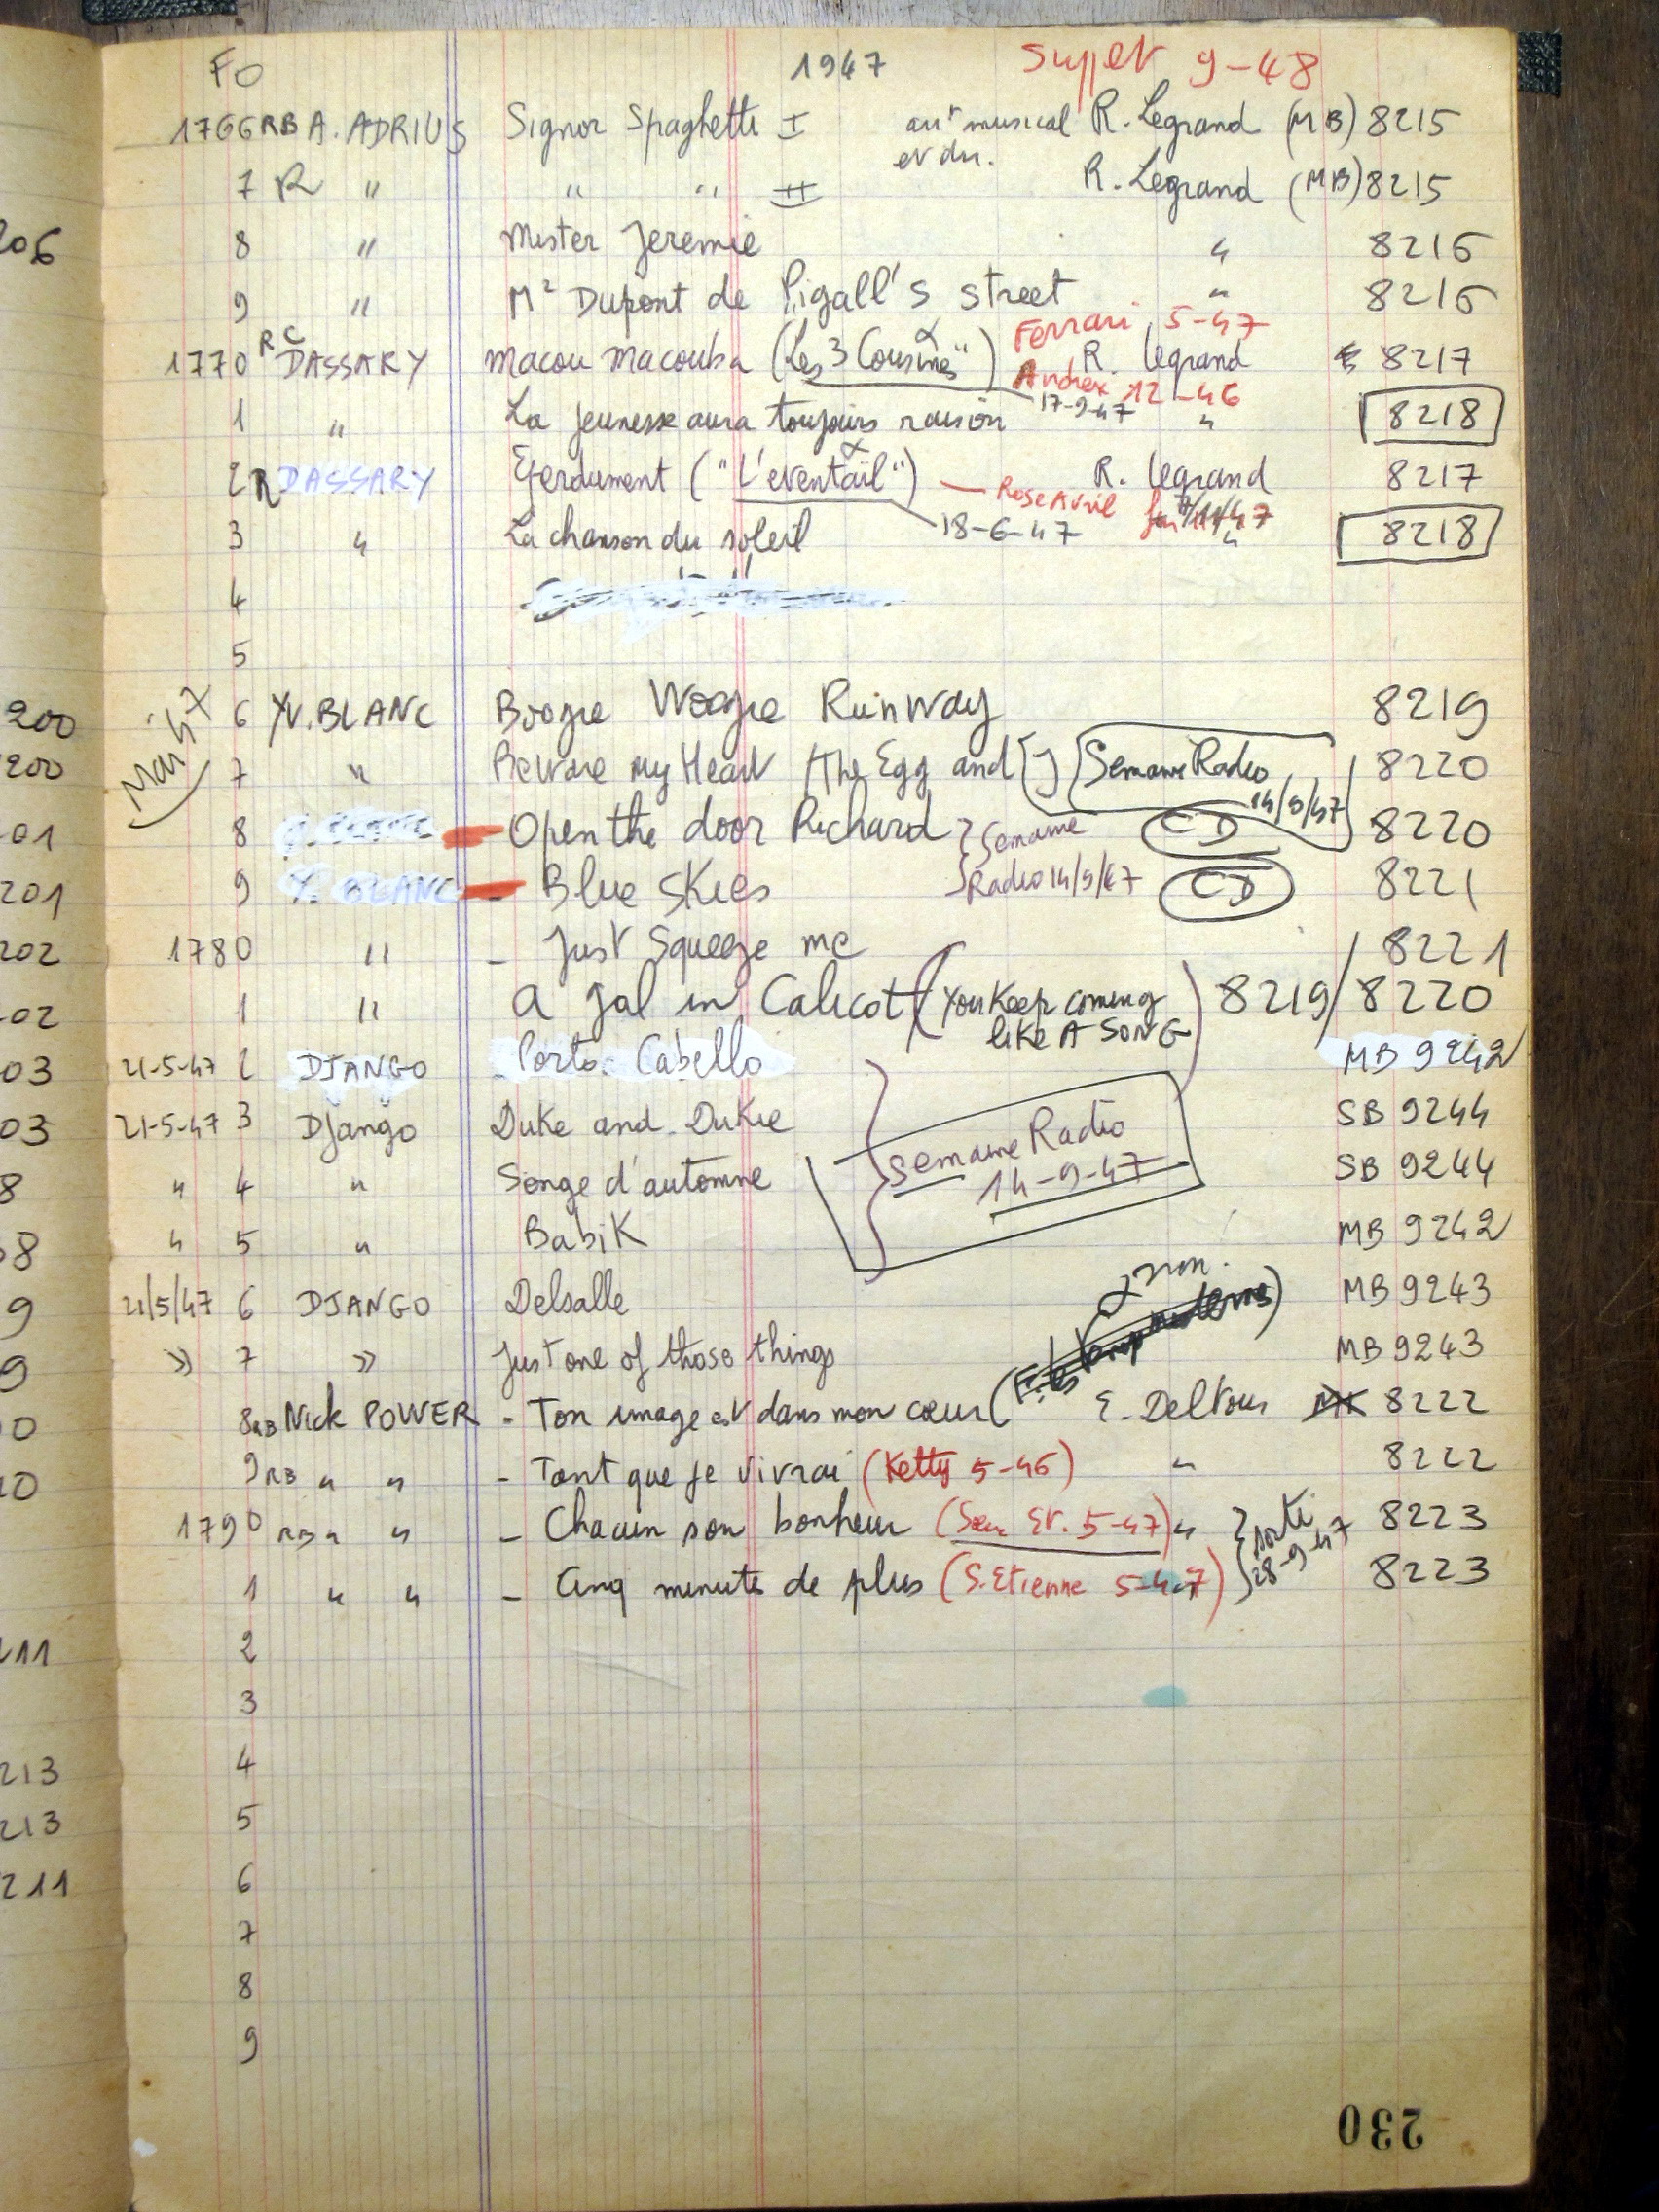 FO 1947 Super 9-48
1766 RB A. ADRIUS Signor Spaghetti I arrt musical R. Legrand (MB) 8215
et dir.
7 R " " " II R. Legrand (MB) 8215
206
8 " Mister Jeremie " 8216
9 " Mr Dupont de Pigall's street " 8216
Ferrari 5-47
1770 RC DASSARY Macou Macouba (Les 3 Cousines") R. Legrand 8217
Andrex 12-46
17-9-47
1 " La jeunesse aura toujours raison " 8218
2 R DASSARY Ejerdument ("L'eventail") R. Legrand 8217
Rose Avril
18-6-47
3 " La chanson du soleil " 8218
4
5
Mai 47
200 6 YV. BLANC Boogie Woogie Runway 8219
200 7 " Beware my Heart (the Egg and I) Semaine Radio 8220
14/9/47
01 8 Open the door Richard Semaine CD 8220
201 9 Y. BLANC - Blue Skies Radio 14/9/47 CD 8221
202 1780 " - Just Squeeze me 8221
02 1 " A gal in Calicot (You Keep coming 8219/8220
like A SONG)
03 21-5-47 2 DJANGO Porto Cabello MB 9242
03 21-5-47 3 Django Duke and Dukie SB 9244
Semaine Radio
14-9-47
8 " 4 " Songe d'automne SB 9244
8 " 5 " Babik MB 9242
non.
9 21/5/47 6 DJANGO Delsalle MB 9243
9 » 7 » Just one of those things MB 9243
0 8 RB Nick POWER - Ton image est dans mon cœur ( E. Deltour 8222
10 9 RB " " - Tant que je vivrai (Ketty 5-46) " 8222
1790 RB " " - Chacun son bonheur (Sem Et. 5-47) " sorti 8223
28-9-47
1 " " - Cinq minutes de plus (S. Etienne 5-47) 8223
211 2
3
213 4
213 5
211 6
7
8
9
230